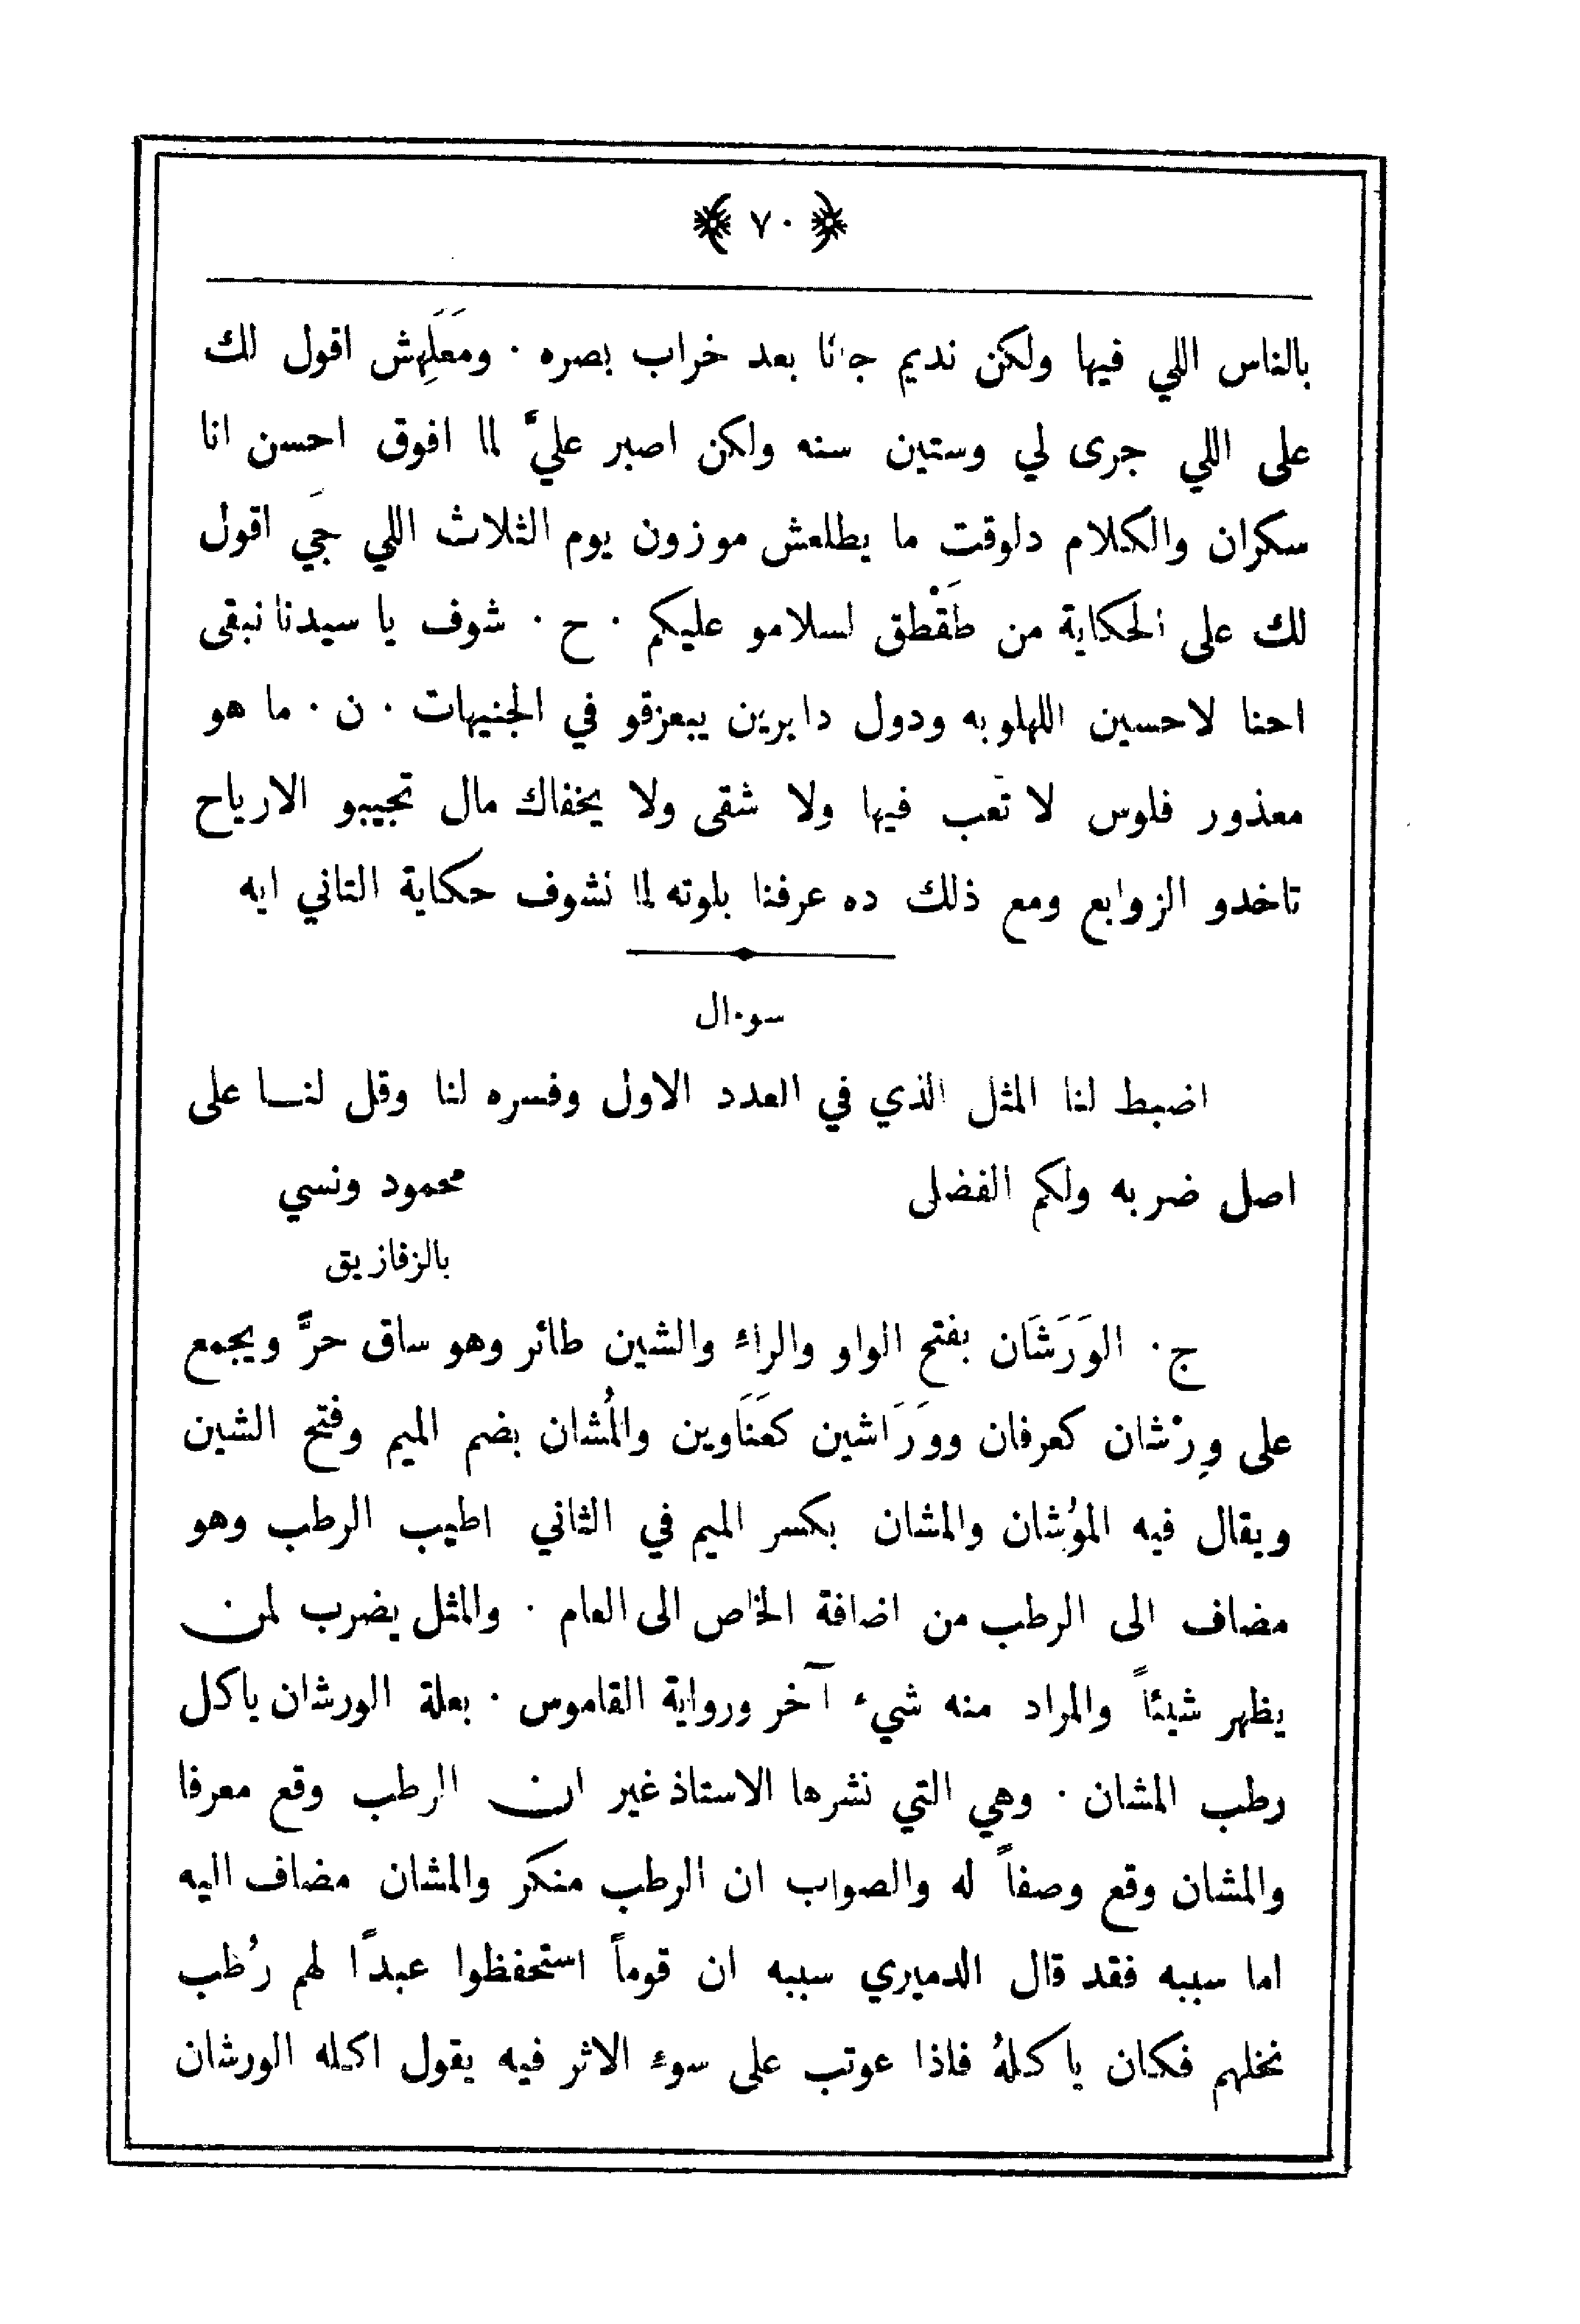 ﴿ ٧٠ ﴾
بالناس اللي فيها ولكن نديم جانا بعد خراب بصره · ومَعَلِهش اقول لك
على اللي جرى لي وستين سنه ولكن اصبر عليَّ لما افوق احسن انا
سكران والكلام دلوقت ما يطلعش موزون يوم الثلاث اللي جَي اقول
لك على الحكاية من طَقْطق لسلامو عليكم · ح · شوف يا سيدنا نبقى
احنا لاحسين اللهلوبه ودول دايرين يبعزقو في الجنيهات · ن · ما هو
معذور فلوس لا تَعب فيها ولا شقى ولا يخفاك مال تجيبو الارياح
تاخدو الزوابع ومع ذلك ده عرفنا بلوته لما نشوف حكاية التاني ايه
سوءال
اضبط لنا المثل الذي في العدد الاول وفسره لنا وقل لنا على
اصل ضربه ولكم الفضل محمود ونسي
بالزقازيق
ج · الوَرَشَان بفتح الواو والراء والشين طائر وهو ساق حرَّ ويجمع
على وِرْشان كعرفان ووَرَاشين كعَنَاوين والمُشان بضم الميم وفتح الشين
ويقال فيه الموُشان والمشان بكسر الميم في الثاني اطيب الرطب وهو
مضاف الى الرطب من اضافة الخاص الى العام · والمثل يضرب لمن
يظهر شيئاً والمراد منه شيء آخر ورواية القاموس · بعلة الورشان ياكل
رطب المشان · وهي التي نشرها الاستاذ غير ان الرطب وقع معرفا
والمشان وقع وصفاً له والصواب ان الرطب منكر والمشان مضاف اليه
اما سببه فقد قال الدميري سببه ان قوماً استحفظوا عبدًا لهم رُطب
نخلهم فكان ياكلهُ فاذا عوتب على سوء الاثر فيه يقول اكله الورشان